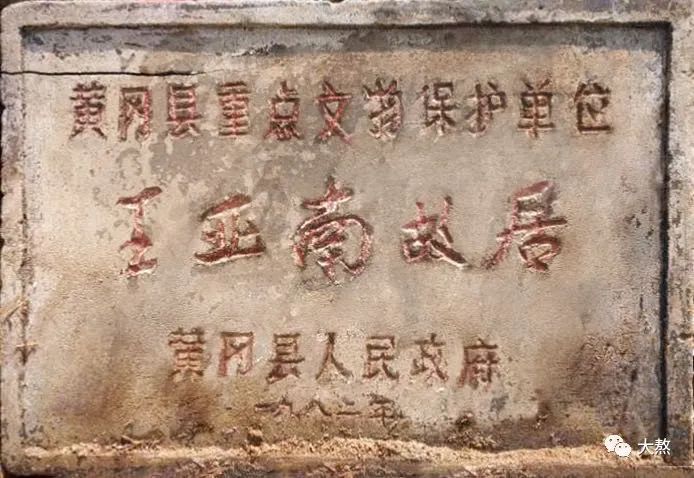 黄冈县重点文物保护单位
王亚南故居
黄冈县人民政府
一九八二年
大熬